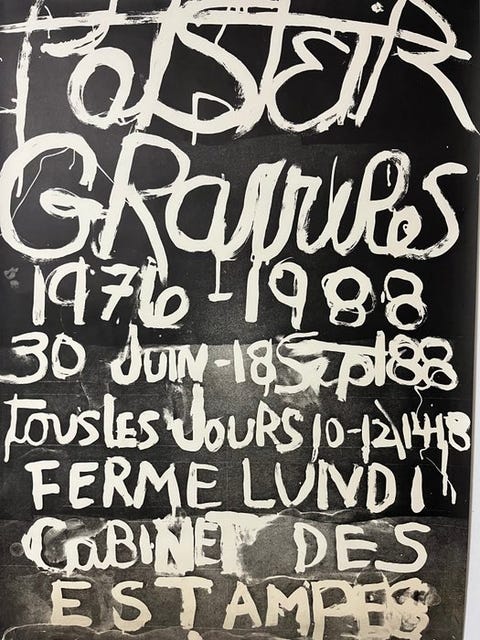 GRAVURES
1976-1988
30 JUIN-18 Sept 88
TOUS LES JOURS 10-12 14-18
FERME LUNDI
CABINET DES
ESTAMPES